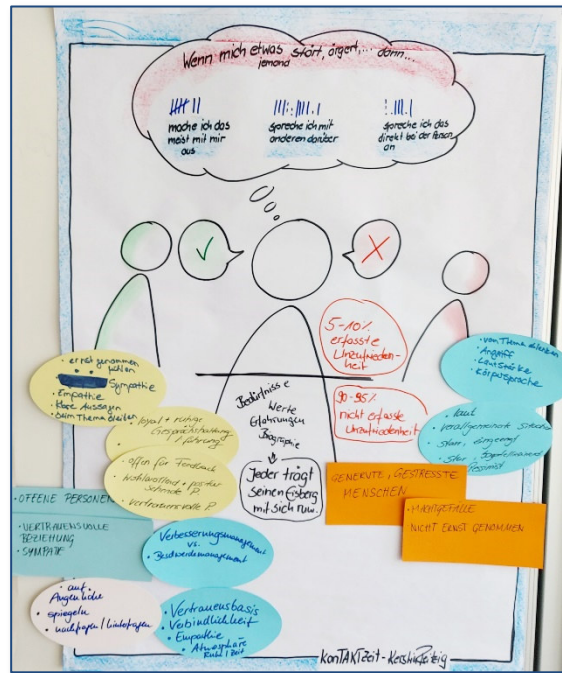 Wenn mich etwas stört, ärgert,... dann...
jemand
mache ich das
meist mit mir
aus
spreche ich mit
anderen darüber
spreche ich das
direkt bei der Person
an
5-10%
erfasste
Unzufrieden-
heit
90-95%
nicht erfasste
Unzufriedenheit
Bedürfnisse
Werte
Erfahrungen
Biographie
Jeder trägt
seinen Eisberg
mit sich rum.
• ernst genommen
fühlen
Sympathie
• Empathie
• klare Aussagen
• beim Thema bleiben
• loyal + ruhige
Gesprächshaltung
/ führung
• offen für Feedback
• wohlwollend +
• vertrauensvolle P
• OFFENE PERSONEN
• VERTRAUENSVOLLE
BEZIEHUNG
• SYMPATIE
Verbesserungsmanagement
vs.
Beschwerdemanagement
• auf
Augenhöhe
• spiegeln
• nachfragen / hinterfragen
• Vertrauensbasis
• Verbindlichkeit
• Empathie
• Atmosphäre
Ruhe / Zeit
• vom Thema
• Angriff
• Lautstärke
• Körpersprache
• laut
• verallgemeinernde
• stur,
• stur,
GENERVTE, GESTRESSTE
MENSCHEN
• MACHTGEFÄLLE
NICHT ERNST GENOMMEN
konTAKTzeit -